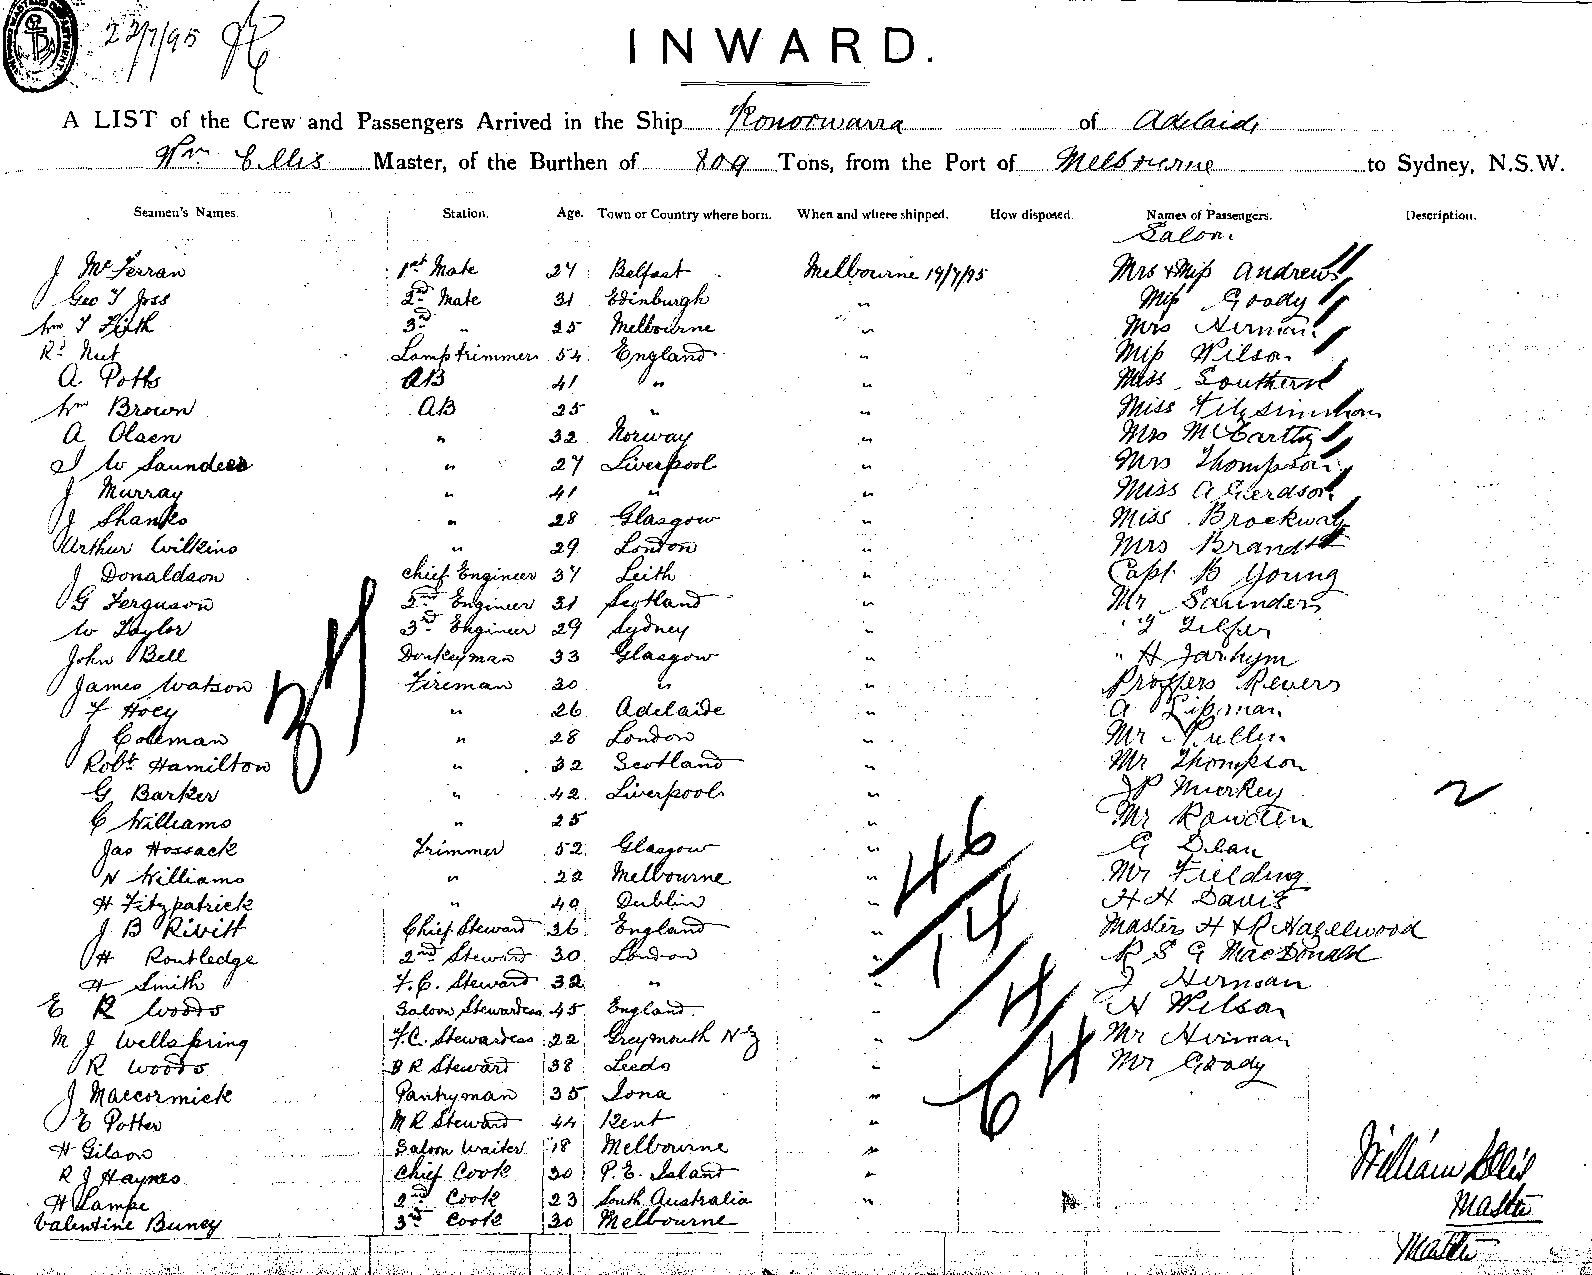 22/7/95
INWARD.
A LIST of the Crew and Passengers Arrived in the Ship Konoowarra of Adelaide
Wm Ellis Master, of the Burthen of 809 Tons, from the Port of Melbourne to Sydney, N.S.W.
Seamen's Names. Station. Age. Town or Country where born. When and where shipped. How disposed. Names of Passengers. Description.
Saloon
J McFerran 1st Mate 27 Belfast Melbourne 19/7/95 Mrs & Miss Andrews
Geo T Joss 2nd Mate 31 Edinburgh " Miss Goody
Wm T Firth 3rd " 25 Melbourne " Mrs Herman
Rd Nut Lamptrimmer 54 England " Miss Wilson
A Potts AB 41 " " Miss Southern
Wm Brown AB 25 " " Miss Fitzsimmon
A Olsen " 32 Norway " Mrs McCartthy
J W Saunders " 27 Liverpool " Mrs Thompson
J Murray " 41 " " Miss A Gerdson
J Shanks " 28 Glasgow " Miss Brockway
Arthur Wilkins " 29 London " Mrs Brandt
J Donaldson Chief Engineer 37 Leith " Capt B Young
G Ferguson 2nd Engineer 31 Scotland " Mr Saunders
W Taylor 3rd Engineer 29 Sydney " " T Telfer
John Bell Donkeyman 33 Glasgow " " H
James Watson Fireman 30 " " Revers
F Hoey " 26 Adelaide " A Lipman
J Coleman " 28 London " Mr Pullin
Robt Hamilton " 32 Scotland " Mr Thompson
G Barker " 42 Liverpool " JP 2
C Williams " 25 " Mr Rowden
Jas Hossack Trimmer 52 Glasgow " G Dean
N Williams " 22 Melbourne " Mr Fielding
H Fitzpatrick " 40 Dublin " H H Davis
J B Rivitt Chief Steward 36 England " Masters H & R Hazelwood
H Routledge 2nd Steward 30 London " R S G MacDonald
H Smith F.C. Steward 32 " " J Herman
E R Woods Saloon Stewardess 45 England " H Wilson
M J Wellspring F.C. Stewardess 22 Greymouth NZ " Mr Herman
R Woods B R Steward 38 Leeds " Mr Goody
J Maccormick Pantryman 35 Iona "
E Potter M R Steward 44 Kent "
H Gilson Saloon Waiter 18 Melbourne "
R J Haynes Chief Cook 30 P.E. Island "
H Lampe 2nd Cook 23 South Australia "
Valentine Buney 3rd Cook 30 Melbourne
37
46
14
4
64
William Ellis
Master
Master